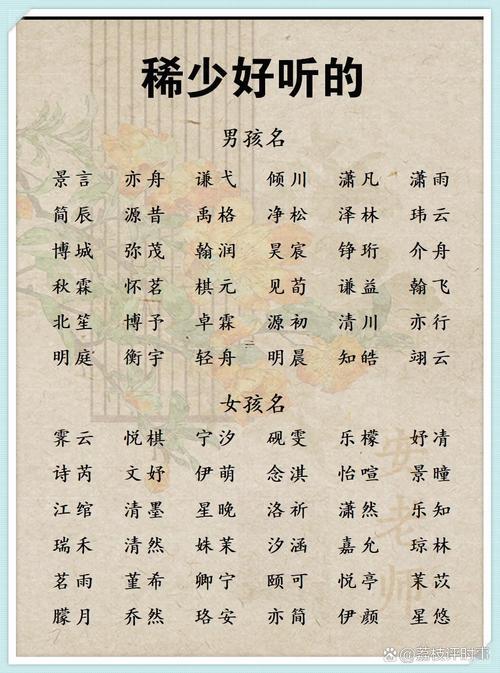 稀少好听的
男孩名
景言 亦舟 谦弋 倾川 潇凡 潇雨
简辰 源昔 禹格 净松 泽林 玮云
博城 弥茂 翰润 昊宸 铮珩 介舟
秋霖 怀茗 棋元 见荀 谦益 翰飞
北笙 博予 卓霖 源初 清川 亦行
明庭 衡宇 轻舟 明晨 知皓 翊云
女孩名
霁云 悦棋 宁汐 砚雯 乐檬 妤清
诗芮 文妤 伊萌 念淇 怡喧 景瞳
江绾 清墨 星晚 洛祈 潇然 乐知
瑞禾 清然 姝茉 汐涵 嘉允 琼林
茗雨 堇希 卿宁 颐可 悦亭 茉苡
朦月 乔然 珞安 亦简 伊颜 星悠
安老师
荔枝评时事